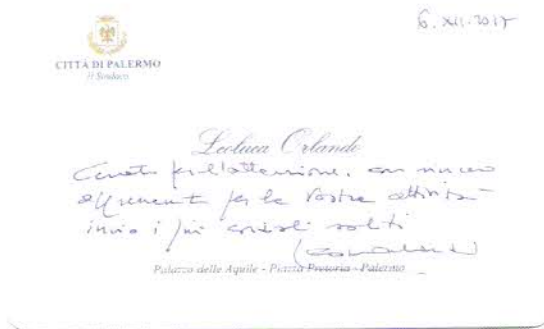 6. XII. 2017
CITTÀ DI PALERMO
Il Sindaco
Leoluca Orlando
per l'attenzione, con sincero
apprezzamento per la Vostra attività
invio i più cordiali saluti
Palazzo delle Aquile - Piazza Pretoria - Palermo